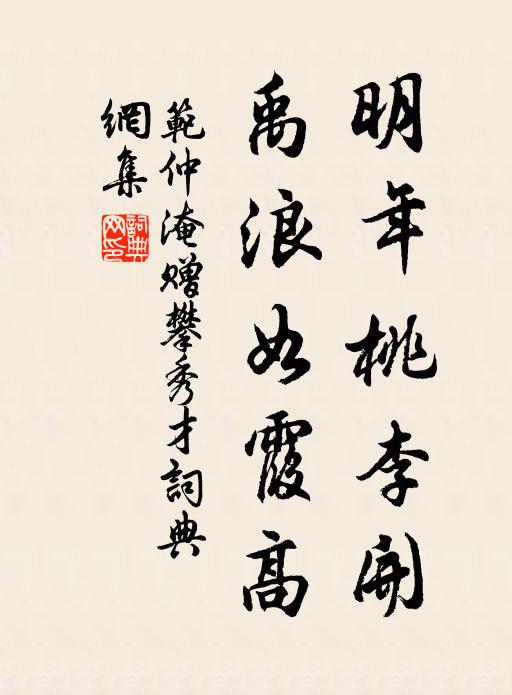 明年桃李開
禹浪如霞高
範仲淹贈攀秀才詞典
網集
詞典
網印